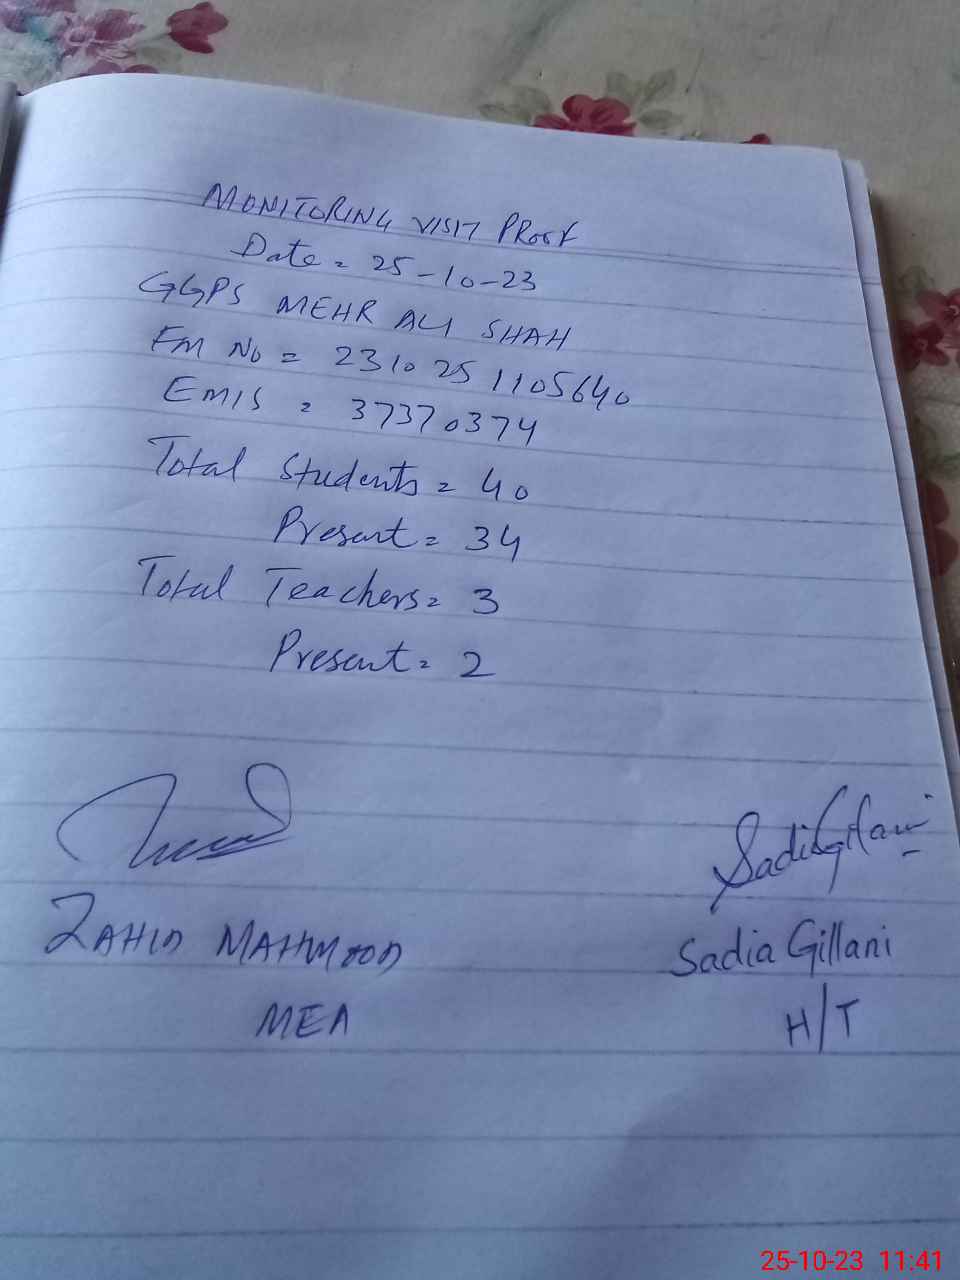 MONITORING VISIT PROOF
Date = 25-10-23
GGPS MEHR ALI SHAH
FM No = 231025 1105640
EMIS = 37370374
Total Students = 40
Present = 34
Total Teachers = 3
Present = 2
Sadia Gilani
ZAHID MAHMOOD
Sadia Gillani
MEA
H/T
25-10-23 11:41